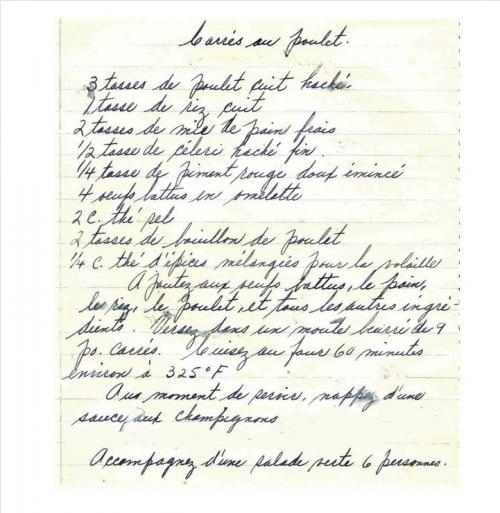 Carrés au poulet.
3 tasses de poulet cuit haché.
1 tasse de riz cuit
2 tasses de mie de pain frais
1/2 tasse de céleri haché fin.
1/4 tasse de piment rouge doux émincé
4 oeufs battus en omelette
2 c. thé sel
2 tasses de bouillon de poulet
1/4 c. thé d'épices mélangées pour la volaille
Ajoutez aux oeufs battus, le pain,
le riz, le poulet, et tous les autres ingré-
dients. Versez dans un moule beurré de 9
po. carrés. Cuisez au four 60 minutes
environ à 325°F
Aus moment de servir, nappez d'une
sauce aux champignons
Accompagnez d'une salade verte 6 personnes.